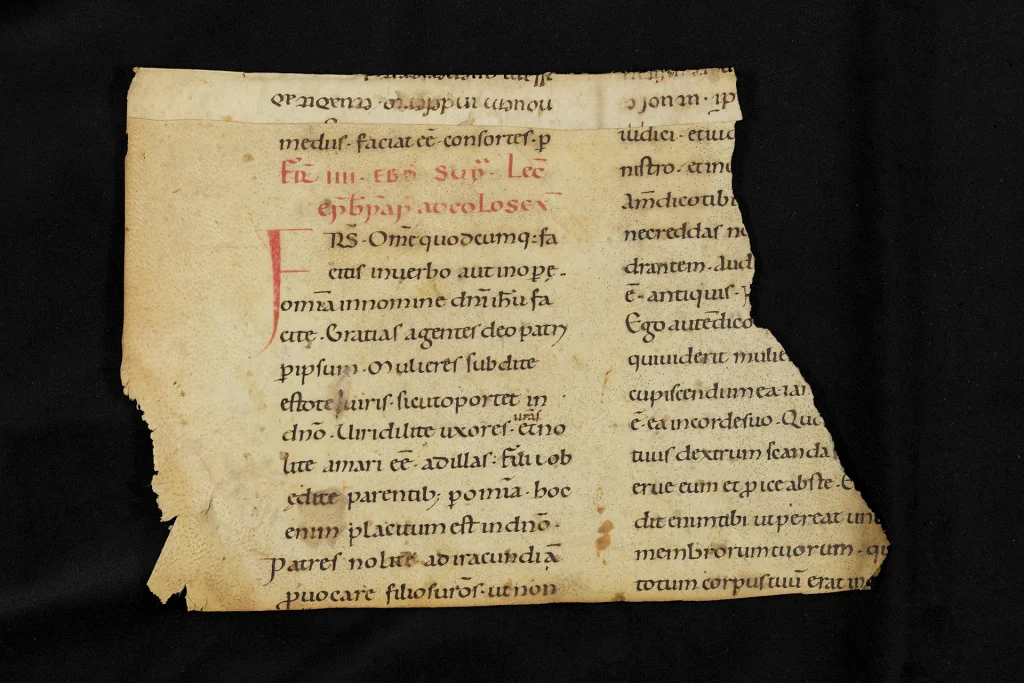 medius · faciat eē · consortes · p
FR̄ IIII · EBD̄ Lec̄
ad colosex̄
FRS̄ · Om̄e quodcumq: fa
citis inuerbo aut inopę ·
omīa innomine dn̄i ih̄u fa
citę · Gratias agentes deo patri
ꝑipsum · Mulieres subdite
estote uiris · sicutoportet in
dn̄o · Uiri dilite uxores · et no
urās
lite amari eē · adillas · filii ob
ędite parentib; ꝑomīa · hoc
enim placitum est indn̄o ·
Patres nolite adiracundiā
ꝓuocare filiosurōs · ut non
iudici · etiud
nistro · etinc
Am̄dicotibi
necreddas no
drantem · Aud
ē · antiquis ·
Ego autē dico
quiuiderit mulie
cupiscendum ea · iam
ē · ea incordesuo · Quo
tuus dextrum scanda
erue eum et ꝓice abste · E
dit enimtibi ut pereat unu
membrorumtuorum · qu
totum corpus tuū